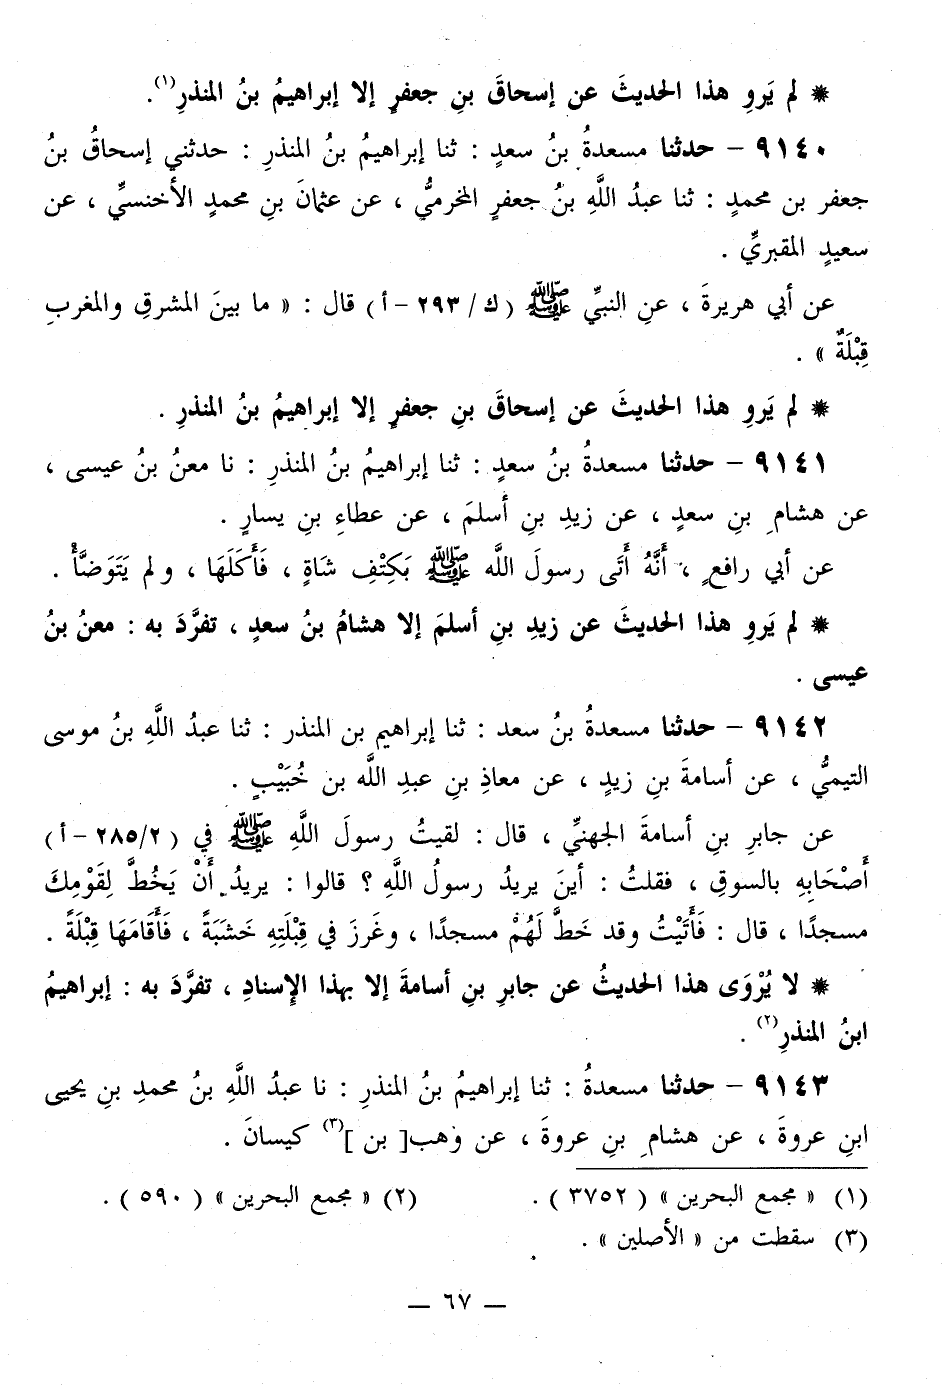 * لم يَروِ هذا الحديثَ عن إسحاقَ بنِ جعفرٍ إلا إبراهيمُ بنُ المنذرِ(١).
٩١٤٠ – حدثنا مسعدةُ بنُ سعدٍ : ثنا إبراهيمُ بنُ المنذرِ : حدثني إسحاقُ بنُ
جعفر بن محمدٍ : ثنا عبدُ اللَّهِ بنُ جعفرٍ المخرميُّ ، عن عثمانَ بنِ محمدٍ الأخنسيِّ ، عن
سعيدٍ المقبريِّ .
عن أبي هريرةَ ، عنِ النبيِّ ﷺ ( ك / ٢٩٣ – أ ) قال : « ما بينَ المشرقِ والمغربِ
قِبْلَةٌ » .
* لم يَروِ هذا الحديثَ عن إسحاقَ بنِ جعفرٍ إلا إبراهيمُ بنُ المنذرِ .
٩١٤١ – حدثنا مسعدةُ بنُ سعدٍ : ثنا إبراهيمُ بنُ المنذرِ : نا معنُ بنُ عيسى ،
عن هشامِ بنِ سعدٍ ، عن زيدِ بنِ أسلمَ ، عن عطاءِ بنِ يسارٍ .
عن أبي رافعٍ ، أَنَّهُ أَتَى رسولَ اللَّه ﷺ بَكِتْفِ شَاةٍ ، فَأَكَلَهَا ، ولم يَتَوَضَّأْ .
* لم يَروِ هذا الحديثَ عن زيدِ بنِ أسلمَ إلا هشامُ بنُ سعدٍ ، تفرَّدَ به : معنُ بنُ
عيسى .
٩١٤٢ – حدثنا مسعدةُ بنُ سعد : ثنا إبراهيم بن المنذر : ثنا عبدُ اللَّهِ بنُ موسى
التيميُّ ، عن أسامةَ بنِ زيدٍ ، عن معاذِ بنِ عبدِ اللَّه بن خُبَيْبٍ .
عن جابرِ بنِ أسامةَ الجهنيِّ ، قال : لقيتُ رسولَ اللَّهِ ﷺ في ( ٢٨٥/٢ – أ )
أَصْحَابِهِ بالسوقِ ، فقلتُ : أينَ يريدُ رسولُ اللَّهِ ؟ قالوا : يريدُ أَنْ يَخُطَّ لِقَوْمِكَ
مسجدًا ، قال : فَأَتَيْتُ وقد خَطَّ لَهُمْ مسجدًا ، وغَرزَ في قِبْلَتِهِ خَشَبَةً ، فَأَقَامَهَا قِبْلَةً .
* لا يُرْوَى هذا الحديثُ عن جابرِ بنِ أسامةَ إلا بهذا الإسنادِ ، تفرَّدَ به : إبراهيمُ
ابنُ المنذرِ(٢) .
٩١٤٣ – حدثنا مسعدةُ : ثنا إبراهيمُ بنُ المنذرِ : نا عبدُ اللَّهِ بنُ محمدِ بنِ يحيى
ابنِ عروةَ ، عن هشامِ بنِ عروةَ ، عن وَهب[ بن ](٣) كيسانَ .
(١) « مجمع البحرين » ( ٣٧٥٢ ) . (٢) « مجمع البحرين » ( ٥٩٠ ) .
(٣) سقطت من « الأصلين » .
— ٦٧ —